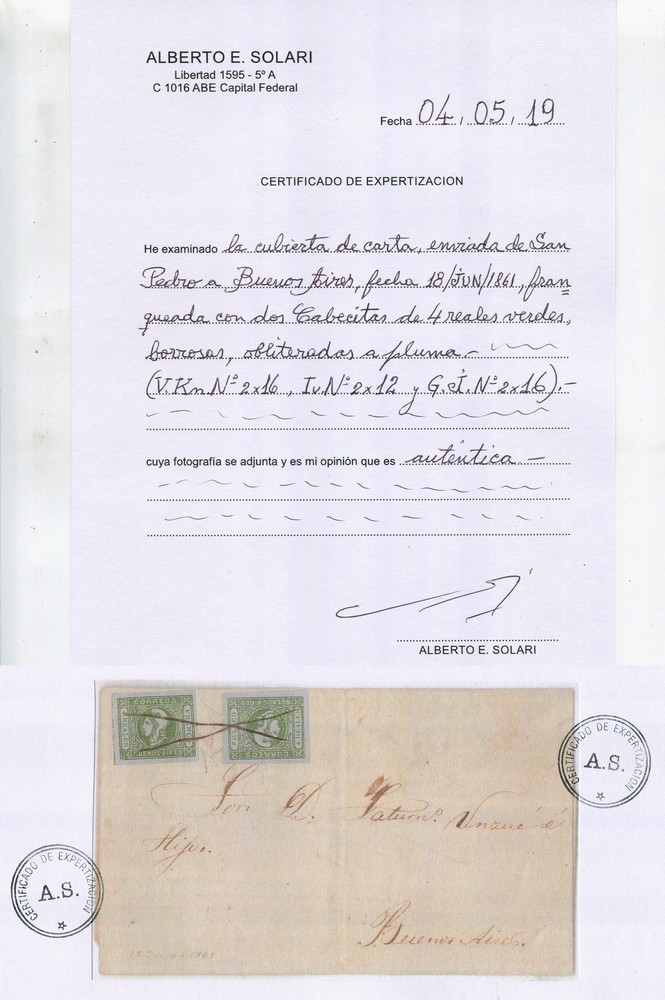 ALBERTO E. SOLARI
Libertad 1595 - 5º A
C 1016 ABE Capital Federal
Fecha 04, 05, 19
CERTIFICADO DE EXPERTIZACION
He examinado la cubierta de carta, enviada de San
Pedro a Buenos Aires, fecha 18/JUN/1861, fran=
queada con dos Cabecitas de 4 reales verdes,
borrosas, obliteradas a pluma.-
(V.Kn.Nº 2x16, Iv.Nº 2x12 y G.J. Nº 2x16).-
cuya fotografía se adjunta y es mi opinión que es auténtica -
ALBERTO E. SOLARI
CORREOS
BUENOS AIRES
BUENOS AIRES
CORREOS
CERTIFICADO DE EXPERTIZACION
A.S.
D. Saturno. Unzué é
Hijos.
Buenos Aires.
CERTIFICADO DE EXPERTIZACION
A.S.